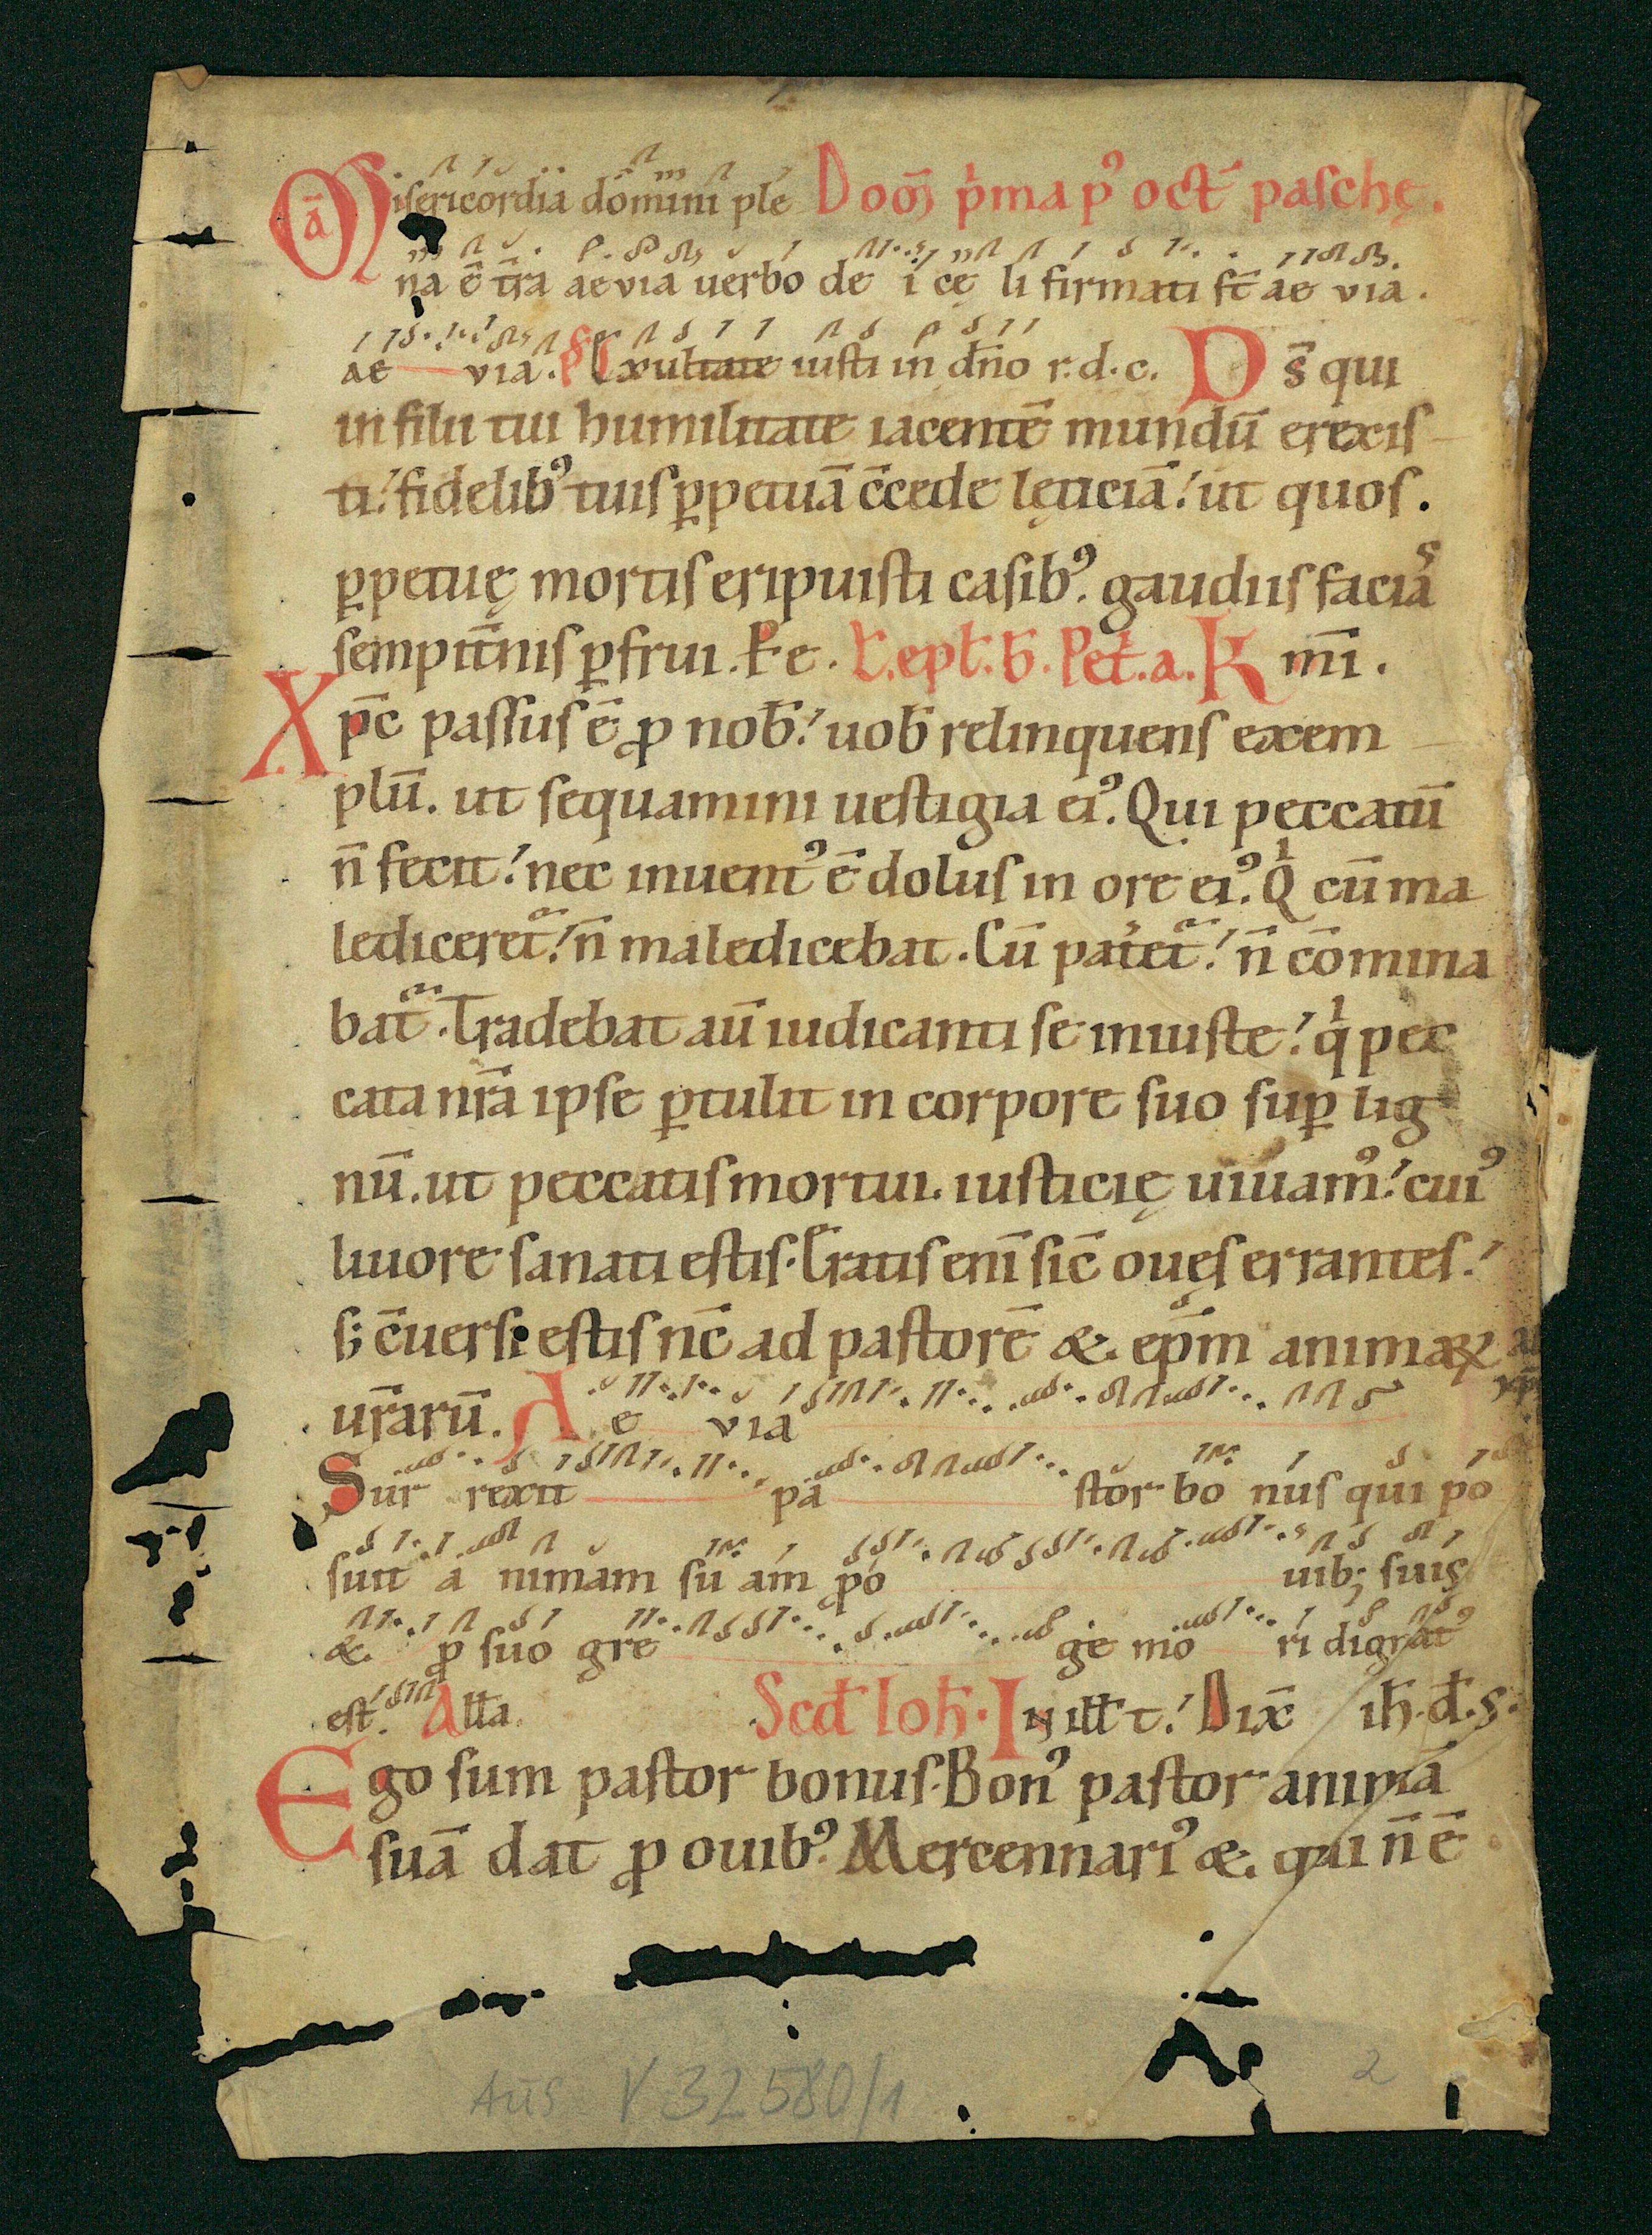 Misericordia domini ple Dom̄ p̄ma pꝰ oct̄ paschę.
na ē t̄ra aevia uerbo dei cęli firmati st̄ aevia.
aevia. Ps Exultate iusti in dn̄o r.d.c. Ds̄ qui
in filii tui humilitate iacentē mundū erexis
ti! fidelibꝰ tuis ꝑpetuā c̄cede lęticiā! ut quos.
ꝑpetuę mortis eripuisti casibꝰ. gaudiis faciaˢ
sempit̄nis ꝑfrui. P̄ e. L̄. epl̄. b̄. Pet̄. a. K mī.
Xp̄c passus ē ꝓ nob̄! uob̄ relinquens exem
plū. ut sequamini uestigia eiꝰ. Qui peccatū
n̄ fecit! nec inuentꝰ ē dolus in ore eiꝰ. Qⁱ cū ma
lediceret᷑! n̄ maledicebat. Cū pat̉et᷑! n̄ cōmina
bat᷑. Tradebat aū iudicanti se iniuste! qⁱ pec
cata nr̄a ipse ꝑtulit in corpore suo suꝑ lig
nū. ut peccatis mortui. iusticię uiuamꝰ! cuiꝰ
liuore sanati estis. Eratis enī sic̄ oues errantes!
s; c̄uersi estis nc̄ ad pastorē &. ep̄m animaꝝ
ur̄arū. Ae via
Surrexit pastor bonus qui po
suit animam suam pro uib; suis
&. ꝓ suo grege mori dignatꝰ
est. All̄a Scd̄ Ioh̄. In ill̄ t! Dix̄ ih̄. d̄. s.
Ego sum pastor bonus. Bonꝰ pastor animā
suā dat ꝓ ouibꝰ. Mercennariꝰ &. qui n̄ ē
Aus V 32580/1
2